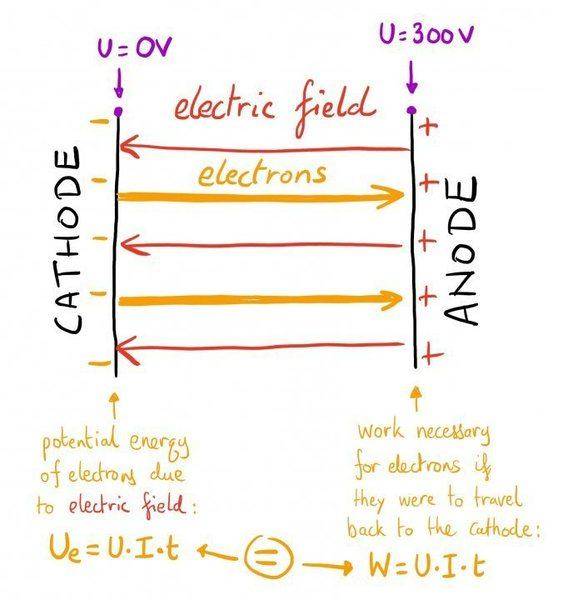 U=0V
U=300V
electric field
electrons
CATHODE
ANODE
− + 
− +
− +
− +
− +
potential energy
of electrons due
to electric field:
Ue=U·I·t
=
work necessary
for electrons if
they were to travel
back to the cathode:
W=U·I·t